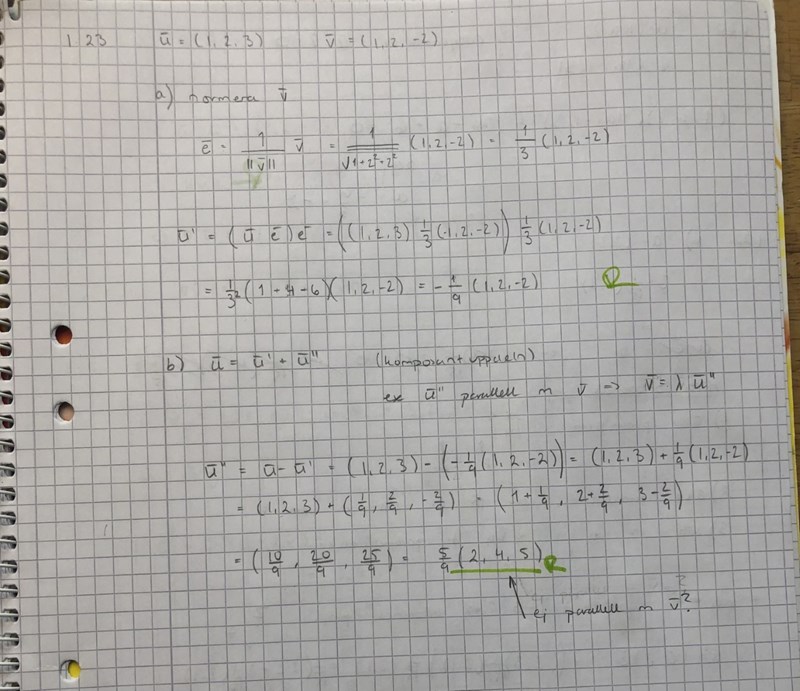 1.23 ū = (1, 2, 3) v̄ = (1, 2, -2)
a) normera v̄
ē = 1/||v̄|| v̄ = 1/√(1+2²+2²) (1, 2, -2) = 1/3 (1, 2, -2)
ū' = (ū ē) ē = ((1, 2, 3) 1/3 (1, 2, -2)) 1/3 (1, 2, -2)
= 1/3² (1 + 4 - 6)(1, 2, -2) = -1/9 (1, 2, -2) R
b) ū = ū' + ū'' (komposantuppdeln)
ū'' parallell m v̄ => v̄ = λ ū''
ū'' = ū - ū' = (1, 2, 3) - (-1/9 (1, 2, -2)) = (1, 2, 3) + 1/9 (1, 2, -2)
= (1, 2, 3) + (1/9, 2/9, -2/9) = (1 + 1/9, 2 + 2/9, 3 - 2/9)
= (10/9, 20/9, 25/9) = 5/9 (2, 4, 5) R
ej parallell m v̄?